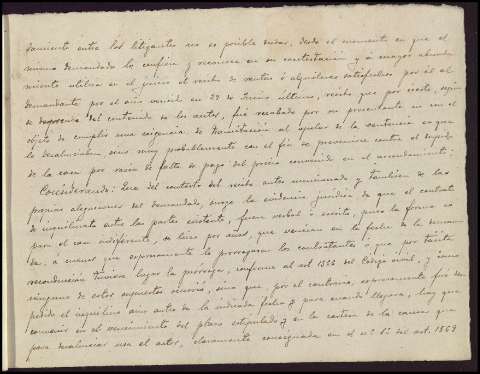 damiento entre los litigantes no es posible dudar, desde el momento en que el
mismo demandado lo confiesa y reconoce en su contestación y á mayor abunda-
miento utiliza en el juicio el recibo de rentas ó alquileres satisfechos por él al
demandante por el año vencido en 29 de Junio último, recibo que por cierto, según
se desprende del contenido de los autos, fué recabado por su presentante no con el
objeto de cumplir una exigencia de tramitación al apelar de la sentencia en que
lo desahuciaban, sino muy probablemente con el fin de prevenirse contra el
de la casa por razón de falta de pago del precio convenido en el arrendamiento.
Considerando: Que del contexto del recibo antes mencionado y también de las
propias alegaciones del demandado, surge la evidencia jurídica de que el contrato
de inquilinato entre las partes existente, fuera verbal ó escrito, pues la forma es
para el caso indiferente, se hizo por años, que vencían en la fecha de la deman-
da, á menos que expresamente lo prorrogaran los contratantes ó que por tácita
reconducción tuviera lugar la prórroga, conforme al art. 1566 del Código civil, y como
ninguno de estos supuestos ocurrió, sino que, por el contrario, expresamente fué des-
pedido el inquilino aun antes de la indicada fecha y para cuando llegara, hay que
convenir en el vencimiento del plazo estipulado y en la certeza de la causa que
para desahuciar usa el actor, claramente consignada en el nº 1º del art. 1569